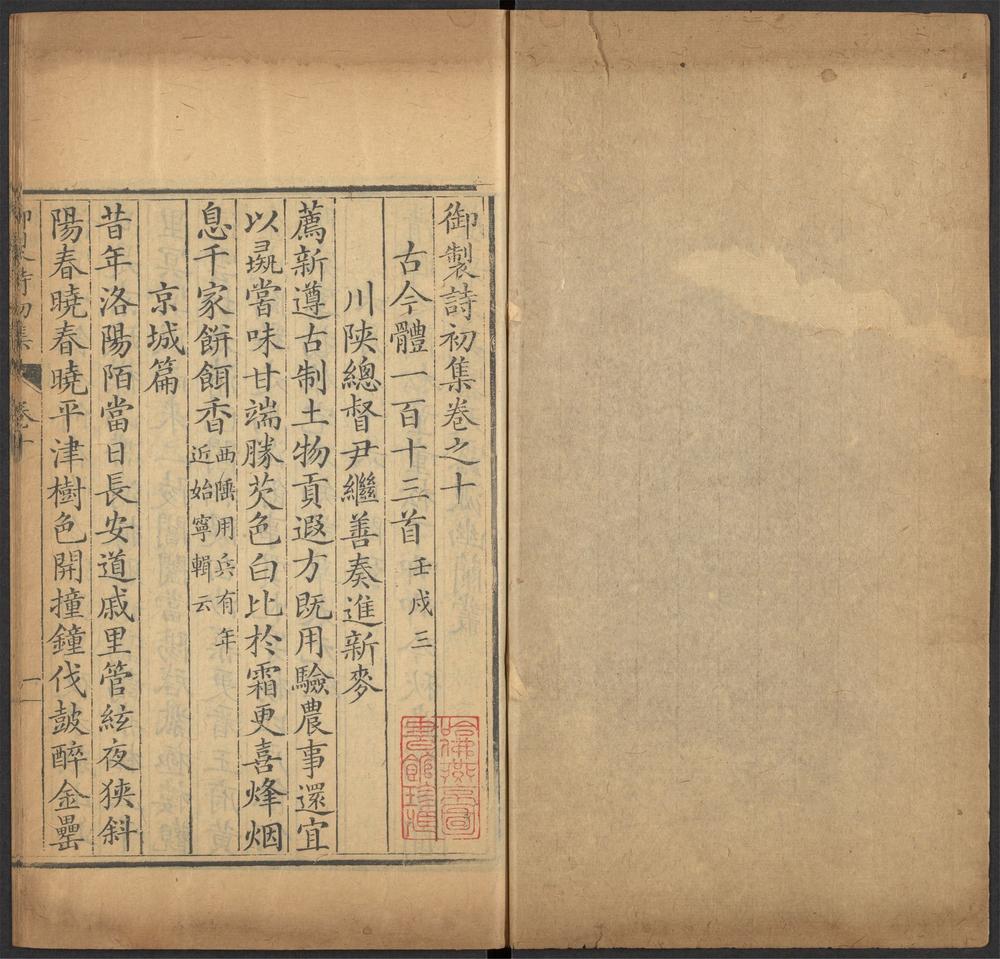 御製詩初集卷之十
古今體一百十三首 壬戌三
川陝總督尹繼善奏進新麥
薦新遵古制土物貢遐方既用驗農事還宜
以嘗味甘端勝芡色白比於霜更喜烽烟
息千家餅餌香 西陲用兵有年
近始寧輯云
京城篇
昔年洛陽陌當日長安道戚里管絃夜狹斜
陽春曉春曉平津樹色開撞鐘伐鼓醉金罍
詩初集
卷十
一
哈佛燕京圖
書館珍藏